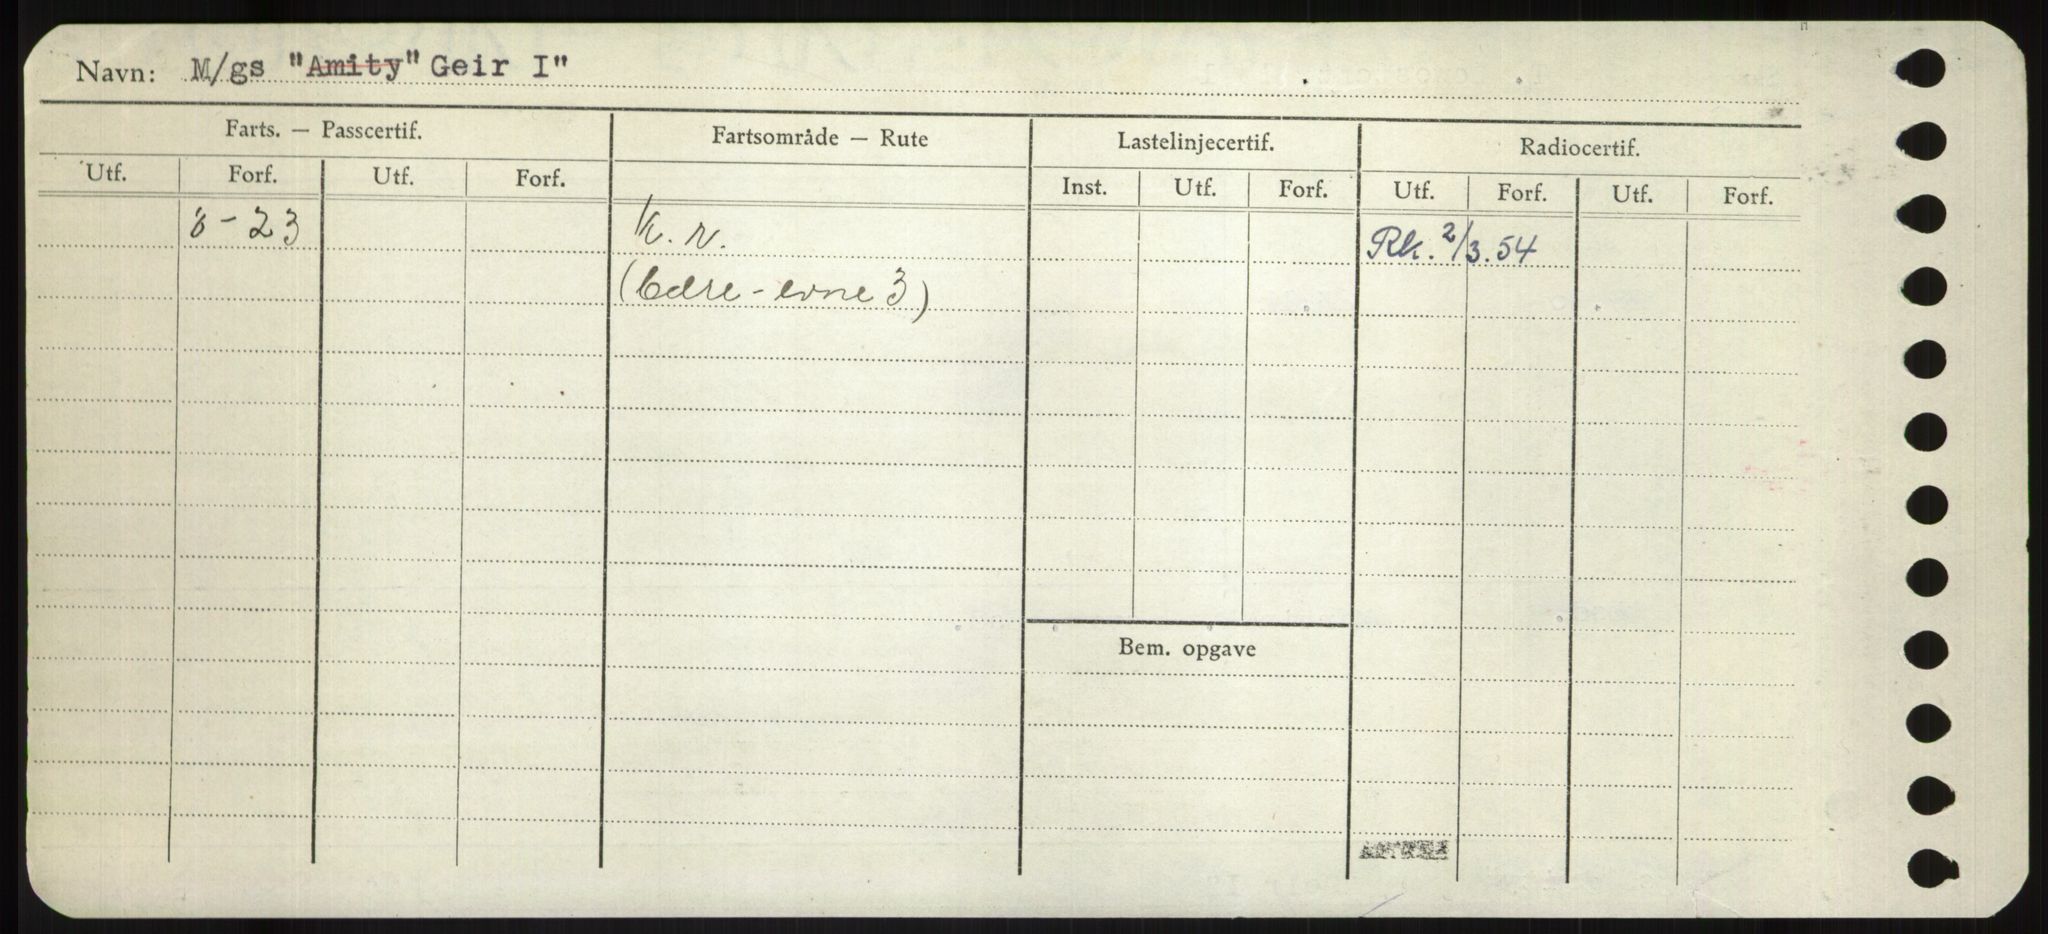 Navn: M/gs "Amity" Geir I"
Farts. — Passcertif. Fartsområde — Rute Lastelinjecertif. Radiocertif.
Utf. Forf. Utf. Forf. Inst. Utf. Forf. Utf. Forf. Utf. Forf.
8-23 K.N. Rk. 2/3.54
(bære-evne 3)
Bem. opgave